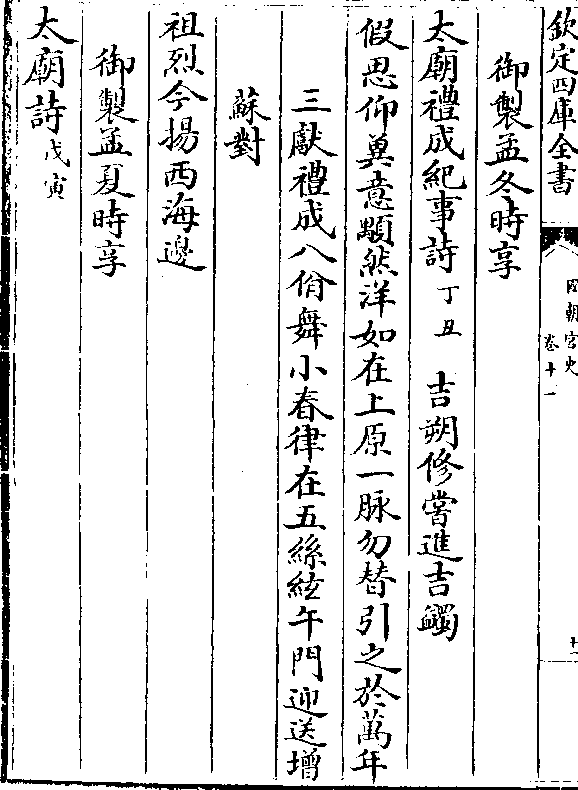 欽定四庫全書
國朝宮史
卷十一
御製孟冬時享
太廟禮成紀事詩丁丑 吉朔修嘗進吉蠲
假思仰奠意顒然洋如在上原一脉勿替引之於萬年
三獻禮成八佾舞小春律在五絲絃午門迎送增
蘇對
祖烈今揚西海邊
御製孟夏時享
太廟詩戊寅